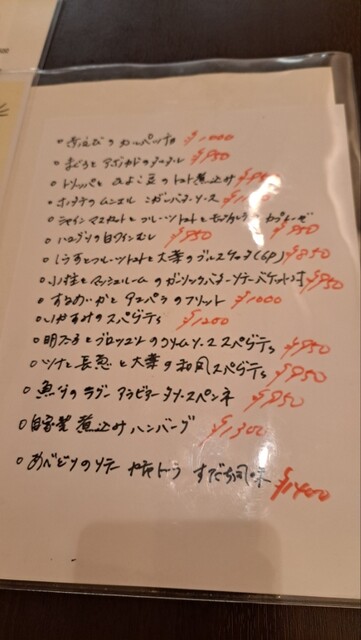 。赤えびのカルパッチョ ¥1000
。まぐろとアボカドのタルタル ¥950
。トリッパとひよこ豆のトマト煮込み ¥950
。ホタテのムニエル バターソース
。シャインマスカットとフルーツトマトとモッツァレラの カプレーゼ ¥950
。ハマグリの白ワインむし ¥950
。しらすとフルーツトマトと大葉のブルスケッタ(4P) ¥850
。小柱とマッシュルームのガーリックバターソテーバケット付 ¥950
。するめいかとアスパラのフリット ¥1000
。いかすみのスパゲティ ¥1200
。明太子とブロッコリーのクリームソーススパゲティ ¥950
。ツナと長葱と大葉の和風スパゲティ ¥950
。魚介のラグー アラビアータソースペンネ ¥950
。自家製煮込みハンバーグ ¥1300
。あべどりのソテー すだち風味 ¥1400